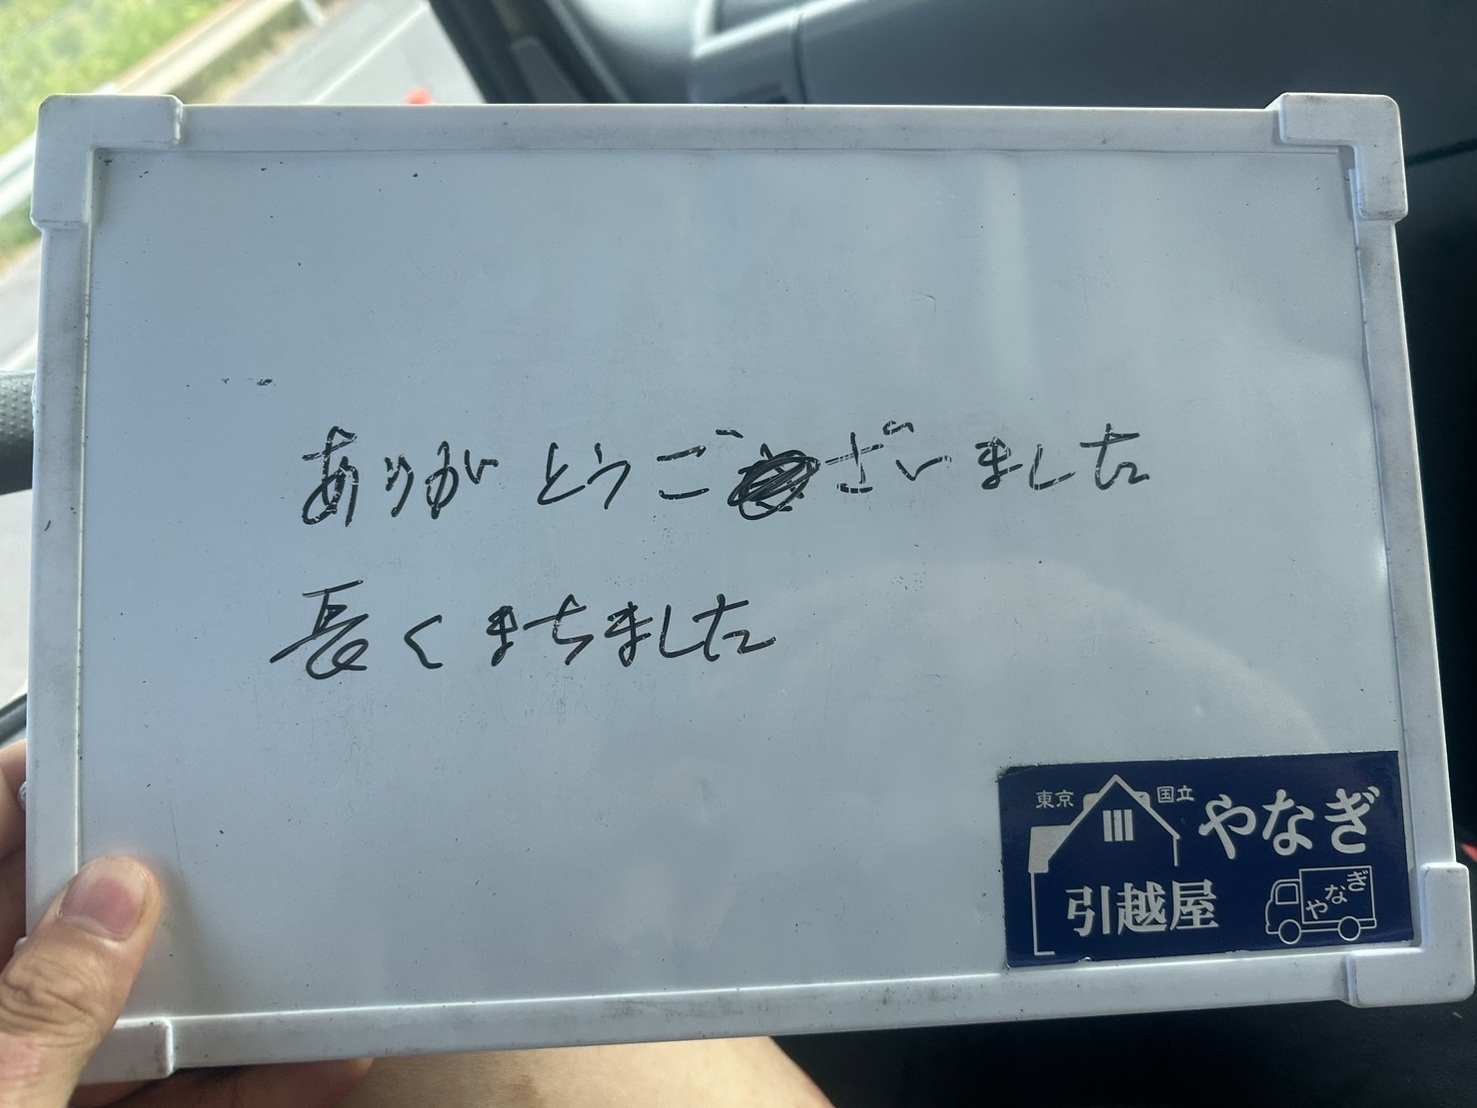 ありがとうございました
長くまちました
東京 国立 やなぎ
引越屋 やなぎ